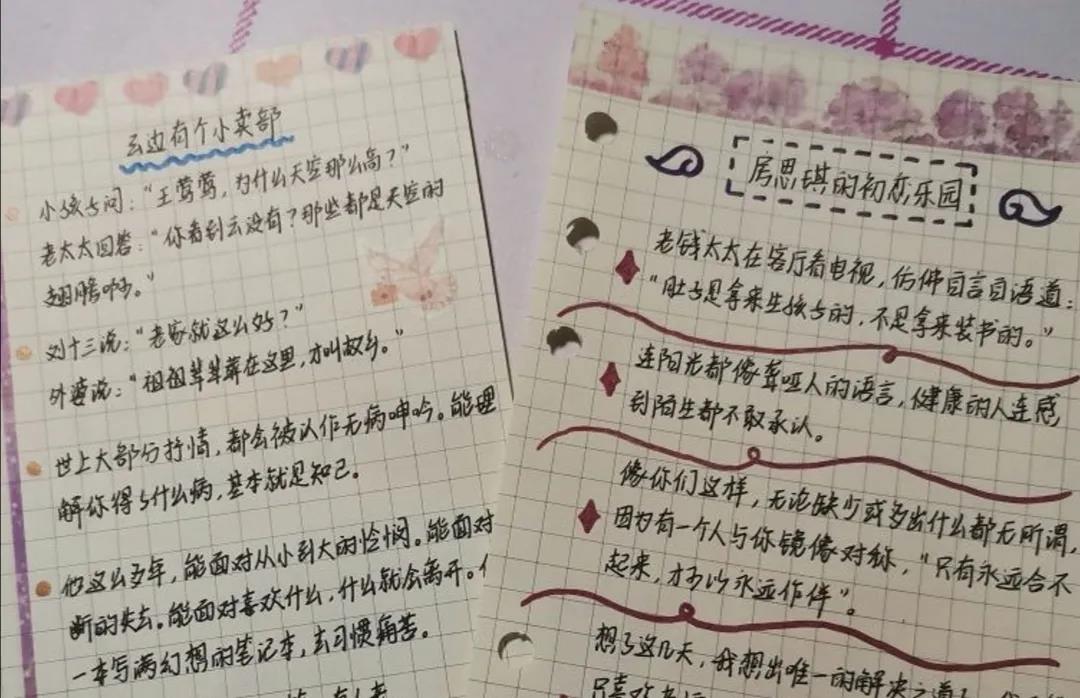 云边有个小卖部
小孩子问："王莺莺，为什么天空那么高？"
老太太回答："你看到云没有？那些都是天空的
翅膀啊。"
刘十三说："老家就这么好？"
外婆说："祖祖辈辈葬在这里，才叫故乡。"
世上大部分抒情，都会被认作无病呻吟。能理
解你得了什么病，基本就是知己。
他这么多年，能面对从小到大的怆惘。能面对
断的失去。能面对喜欢什么，什么就会离开。
一本写满幻想的笔记本，去习惯痛苦。
房思琪的初恋乐园
老钱太太在客厅看电视，仿佛自言自语道：
"肚子是拿来生孩子的，不是拿来装书的。"
连阳光都像聋哑人的语言，健康的人连感
到陌生都不敢承认。
像你们这样，无论缺少或多出什么都无所谓，
因为有一个人与你镜像对称，"只有永远合不
起来，才可以永远作伴"。
想了这几天，我想出唯一的解决之道
只喜欢老